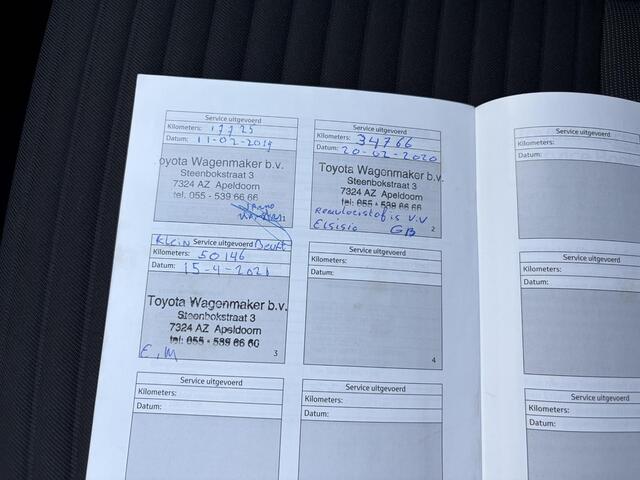 Service uitgevoerd
Kilometers: 17725
Datum: 11-02-2019
oyota Wagenmaker b.v.
Steenbokstraat 3
7324 AZ Apeldoorn
tel: 055 - 539 66 66
1
Service uitgevoerd
Kilometers: 34766
Datum: 20-02-2020
Toyota Wagenmaker b.v.
Steenbokstraat 3
7324 AZ Apeldoorn
tel: 055 - 539 66 66
Remvloeistof is V.V
GB
2
Klein Service uitgevoerd Beurt
Kilometers: 50146
Datum: 15-4-2021
Toyota Wagenmaker b.v.
Steenbokstraat 3
7324 AZ Apeldoorn
tel: 055 - 539 66 66
E.M
3
Service uitgevoerd
Kilometers:
Datum:
4
Service uitgevoerd
Kilometers:
Datum:
Service uitgevoerd
Kilometers:
Datum:
Service uitgevoerd
Kilometers:
Datum:
Service uitgevoerd
Kilometers:
Datum:
Service uitgevoerd
Kilometers:
Datum: